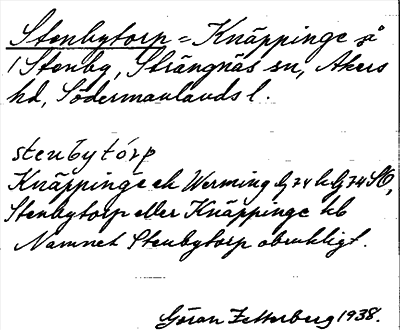 Stenbytorp = Knäppinge på
/ Stenby, Strängnäs sn, Åkers
hd, Södermanlands l.
stenbytórp
Knäppinge ek Werming
Stenbytorp eller Knäppinge kb
Namnet Stenbytorp obrukligt.
Göran Zetterberg 1938.